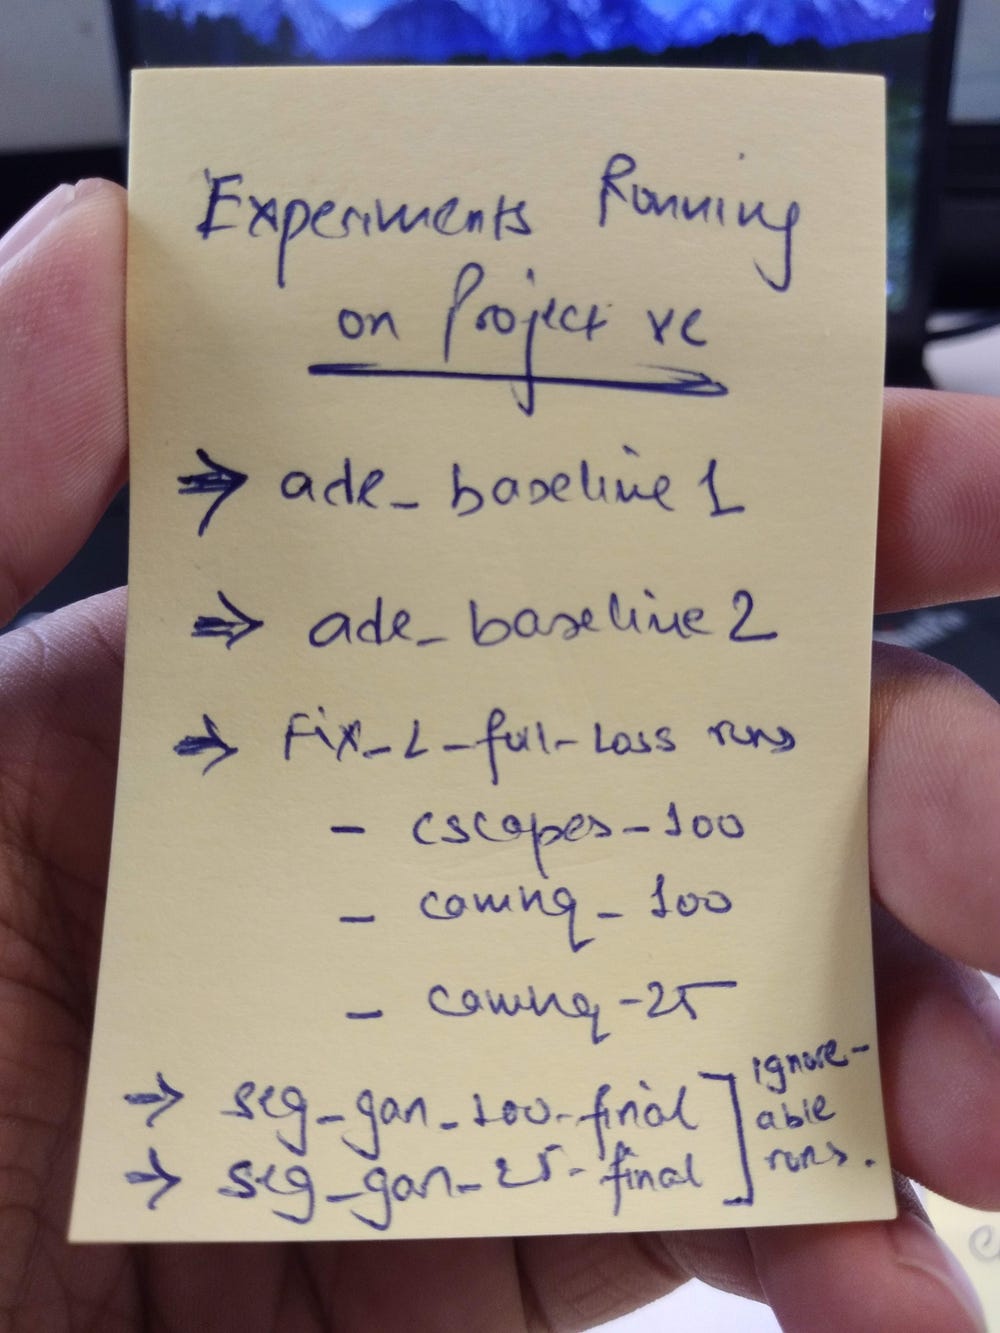 Experiments Running
on Project re
ade_baseline1
ade_baseline2
Fix_L_full-Loss runs
- cscapes-100
- camhq_100
- camhq-25
seg_gan_100-final
seg_gan_25-final
ignore-
able
runs.